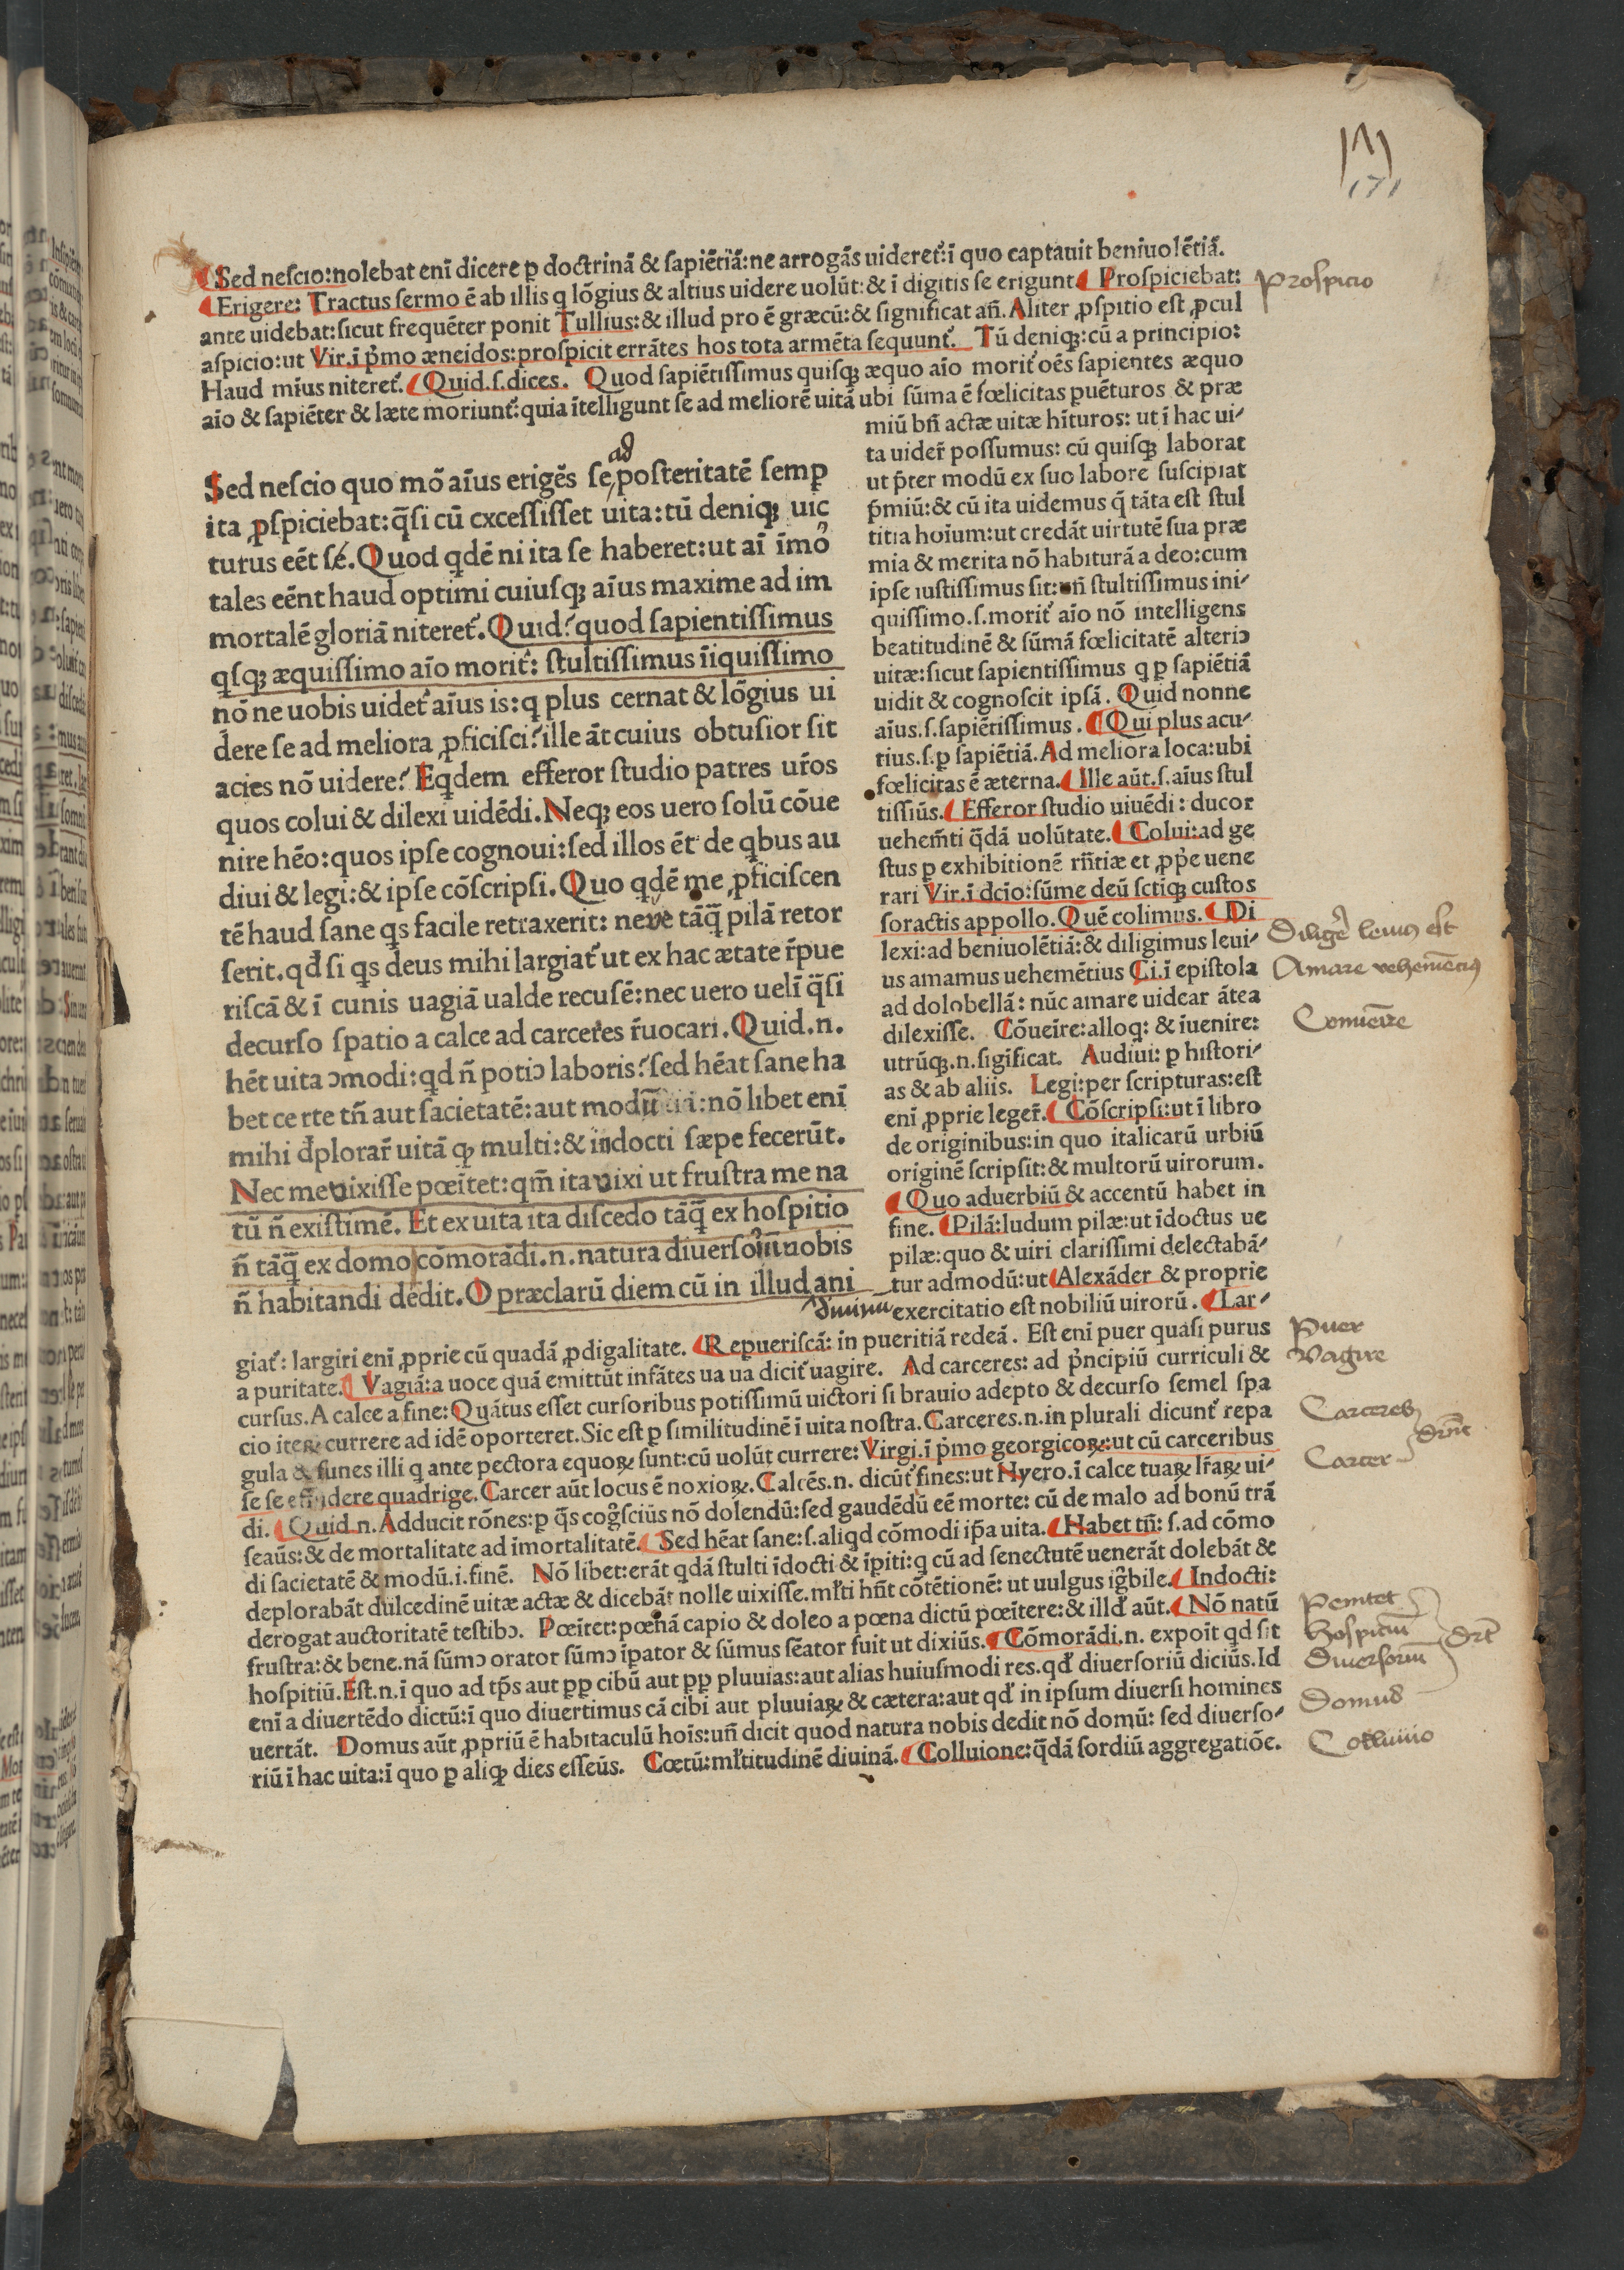 171
Sed nescio:nolebat enī dicere ꝑ doctrinā & sapiētiā:ne arrogās uideret᷑:ī quo captauit beniuolētiā.
Erigere: Tractus sermo ē ab illis q lōgius & altius uidere uolūt:& ī digitis se erigunt Prospiciebat:
ante uidebat:sicut frequēter ponit Tullius:& illud pro ē græcū:& significat an̄. Aliter ꝓspitio est ꝓcul
aspicio:ut Vir.ī pͥmo æneidos:prospicit errātes hos tota armēta sequunt᷑. Tū deniqꝫ:cū a principio:
Haud mīus niteret᷑. Quid.s.dices. Quod sapiētissimus quisqꝫ æquo aīo morit᷑ oēs sapientes æquo
aīo & sapiēter & læte moriunt᷑:quia ītelligunt se ad meliorē uitā ubi sūma ē fœlicitas puēturos & præ
Prospicio
ad
Sed nescio quo mō aīus erigēs se posteritatē semꝑ
ita ꝓspiciebat:q̄si cū excessisset uita:tū deniqꝫ uic
turus eēt sē. Quod qdē ni ita se haberet:ut aī īmo
tales eēnt haud optimi cuiusqꝫ aīus maxime ad im
mortalē gloriā niteret᷑. Quid? quod sapientissimus
qsqꝫ æquissimo aīo morit᷑: stultissimus īiquissimo
nō ne uobis uidet᷑ aīus is:q plus cernat & lōgius ui
dere se ad meliora ꝓficisci? ille āt cuius obtusior sit
acies nō uidere? Eqdem efferor studio patres ur̄os
quos colui & dilexi uidēdi. Neqꝫ eos uero solū cōue
nire hēo:quos ipse cognoui:sed illos ēt de qbus au
diui & legi:& ipse cōscripsi. Quo qdē me ꝓficiscen
tē haud sane qs facile retraxerit: neve tāq̄ pilā retor
serit.qđ si qs deus mihi largiat᷑ ut ex hac ætate r̄pue
riscā & ī cunis uagiā ualde recusē:nec uero uelī q̄si
decurso spatio a calce ad carceres r̄uocari. Quid.n.
hēt uita ɔmodi:qd n̄ potiɔ laboris? sed hēat sane ha
bet ce rte tn̄ aut sacietatē:aut modū :nō libet enī
mihi đplorar̄ uitā qꝫ multi:& indocti sæpe fecerūt.
Nec me vixisse pœitet:qm̄ ita vixi ut frustra me na
tū n̄ existimē. Et ex uita ita discedo tāq̄ ex hospitio
n̄ tāq̄ ex domo cōmorādi.n.natura diuerso nobis
n̄ habitandi dēdit. O præclarū diem cū in illud ani
miū bn̄ actæ uitæ hīturos: ut ī hac ui⸗
ta uider̄ possumus: cū quisqꝫ laborat
ut p̄ter modū ex suo labore suscipiat
p̄miū:& cū ita uidemus q̄ tāta est stul
titia hoīum:ut credāt uirtutē sua præ
mia & merita nō habiturā a deo:cum
ipse iustissimus sit: n̄ stultissimus ini⸗
quissimo.s.morit᷑ aīo nō intelligens
beatitudinē & sūmā fœlicitatē alteriɔ
uitæ:sicut sapientissimus q ꝑ sapiētiā
uidit & cognoscit ipsā. Quid nonne
aīus.s.sapiētissimus. Qui plus acu⸗
tius.s.ꝑ sapiētiā. Ad meliora loca:ubi
fœlicitas ē æterna. Ille aūt.s.aīus stul
tissiūs. Efferor studio uiuēdi: ducor
uehem̄ti q̄dā uolūtate. Colui:ad ge
stus ꝑ exhibitionē rn̄tiæ et ꝓpͥe uene
rari Vir.ī dcīo:sūme deū sctīqꝫ custos
soractis appollo. Quē colimus. Di
lexi:ad beniuolētiā:& diligimus leui⸗
us amamus uehemētius Ci.ī epistola
ad dolobellā: nūc amare uidear ātea
dilexisse. Cōueīre:alloq: & īuenire:
utrūqꝫ.n.sigīficat. Audiui: ꝑ histori⸗
as & ab aliis. Legi:per scripturas:est
enī ꝓprie leger̄. Cōscripsi:ut ī libro
de originibus:in quo italicarū urbiū
originē scripsit:& multorū uirorum.
Quo aduerbiū & accentū habet in
fine. Pilā:ludum pilæ:ut īdoctus ue
pilæ:quo & uiri clarissimi delectabā⸗
tur admodū:ut Alexāder & proprie
exercitatio est nobiliū uirorū. Lar⸗
Diligere leuius est
Amare vehementius
Conuenire
giat᷑: largiri enī ꝓprie cū quadā ꝓdigalitate. Repueriscā: in pueritiā redeā. Est enī puer quasi purus
a puritate. Vagiā:a uoce quā emittūt infātes ua ua dicit᷑ uagire. Ad carceres: ad pͥncipiū curriculi &
cursus. A calce a fine: Quātus esset cursoribus potissimū uictori si brauio adepto & decurso semel spa
cio iteꝝ currere ad idē oporteret. Sic est ꝑ similitudinē ī uita nostra. Carceres.n.in plurali dicunt᷑ repa
gula & funes illi q ante pectora equoꝝ sunt:cū uolūt currere: Virgi.ī pͥmo georgicoꝝ:ut cū carceribus
se se effūdere quadrige. Carcer aūt locus ē noxioꝝ. Calcēs.n. dicūt᷑ fines:ut Hyero.ī calce tuaꝝ lr̄aꝝ ui⸗
di. Quid.n. Adducit rōnes:ꝑ q̄s cog̊sciūs nō dolendū:sed gaudēdū eē morte: cū de malo ad bonū trā
seaūs:& de mortalitate ad imortalitatē. Sed hēat sane:s.aliqd cōmodi ip̄a uita. Habet tn̄: s.ad cōmo
di sacietatē & modū.i.finē. Nō libet:erāt qdā stulti īdocti & īpiti:q cū ad senectutē uenerāt dolebāt &
deplorabāt dulcedinē uitæ actæ & dicebāt nolle uixisse.mł̄ti hn̄t cōtētionē: ut uulgus ig̊bile. Indocti:
derogat auctoritatē testibɔ. Pœitet:pœnā capio & doleo a pœna dictū pœitere:& illđ aūt. Nō natū
frustra:& bene.nā sūmɔ orator sūmɔ īpator & sūmus sēator fuit ut dixiūs. Cōmorādi.n. expoīt qd sit
hospitiū. Est.n.ī quo ad tp̄s aut ꝓꝑ cibū aut ꝓꝑ pluuias:aut alias huiusmodi res.qđ diuersoriū diciūs. Id
enī a diuertēdo dictū:ī quo diuertimus cā cibi aut pluuiaꝝ & cætera:aut qđ in ipsum diuersi homines
uertāt. Domus aūt ꝓpriū ē habitaculū hoīs:un̄ dicit quod natura nobis dedit nō domū: sed diuerso⸗
riū ī hac uita:ī quo ꝑ aliqꝫ dies esseūs. Cœtū:mł̄titudinē diuinā. Colluione:q̄dā sordiū aggregatiōe.
Puer
Vagire
Carceres
Carcer
Penitet
Hospitium
Diuersorium
Domus
Colluuio